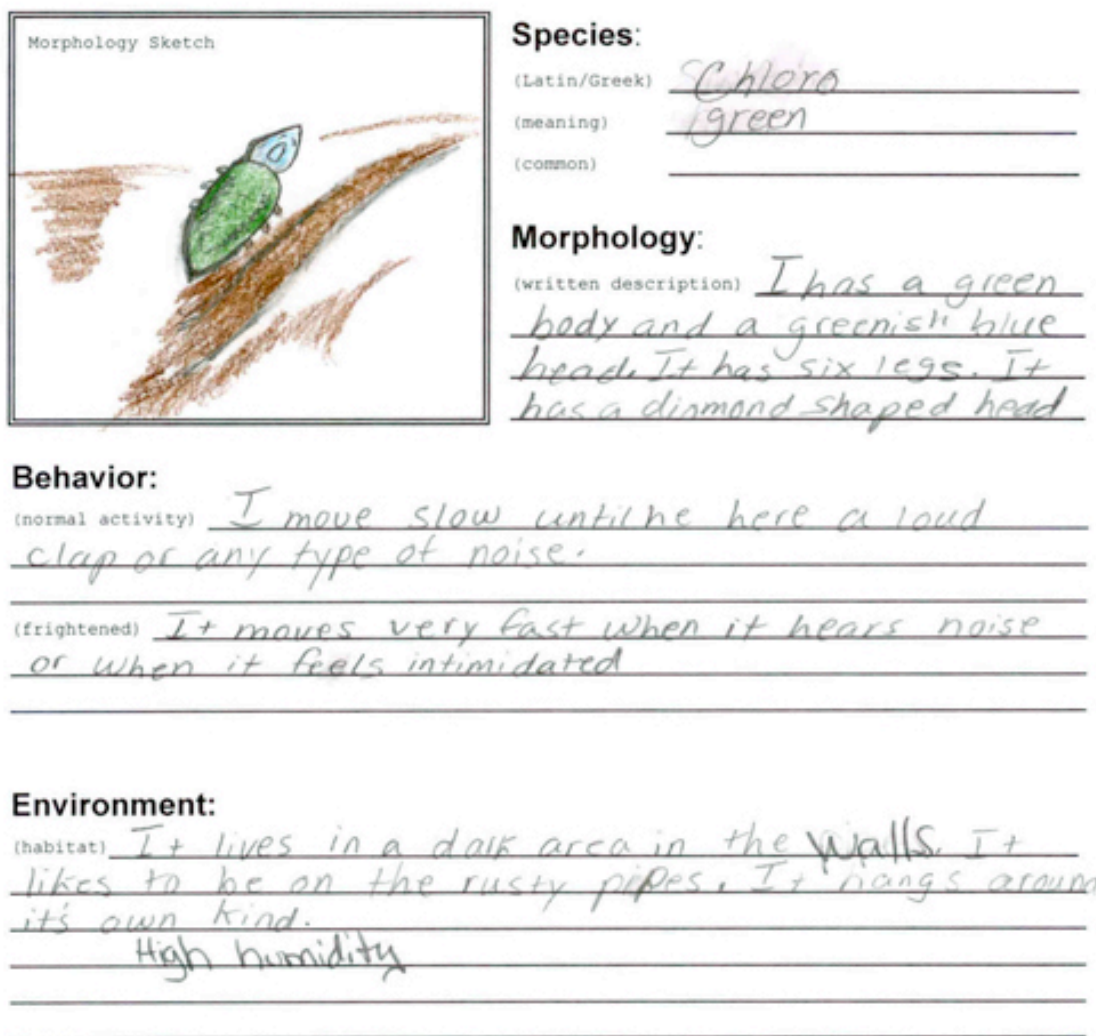 Morphology Sketch
Species:
(Latin/Greek) Chloro
(meaning) green
(common)
Morphology:
(written description) I has a green
body and a greenish blue
head. It has six legs. It
has a dinmond shaped head
Behavior:
(normal activity) I move slow until he here a loud
clap or any type of noise.
(frightened) It moves very fast when it hears noise
or when it feels intimidated
Environment:
(habitat) It lives in a dark area in the walls. It
likes to be on the rusty pipes. It hangs around
it's own kind.
High humidity